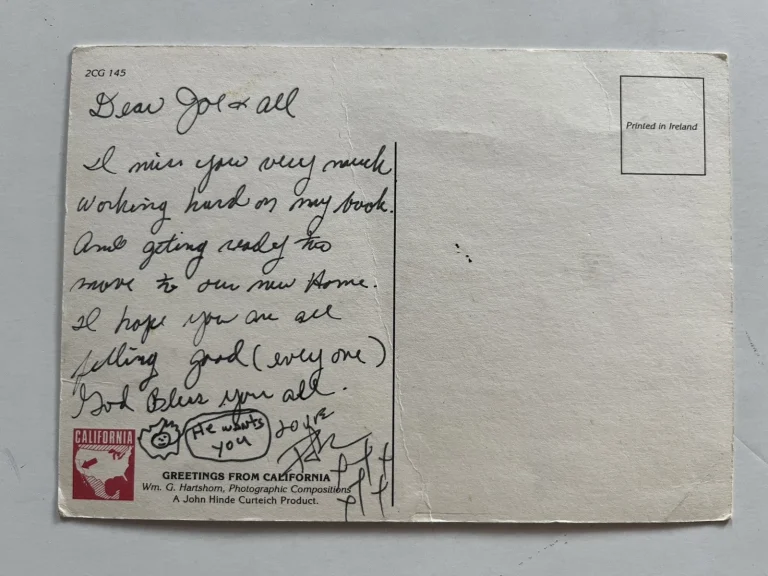 2CG 145
Dear Joe & all
I miss you very much
working hard on my book.
And geting ready to
move to our new Home.
I hope you are all
felling good (every one)
God Bless you all.
He wants
you
CALIFORNIA
GREETINGS FROM CALIFORNIA
Wm. G. Hartshorn, Photographic Compositions
A John Hinde Curteich Product.
Printed in Ireland